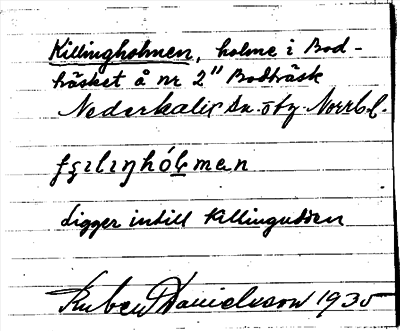 Killingholmen, holme i Bod-
träsket å nr 2" Bodträsk
Nederkalix sn. Norrb. l.
holmen
Ligger intill Killingudden
Ruben Danielsson 1935